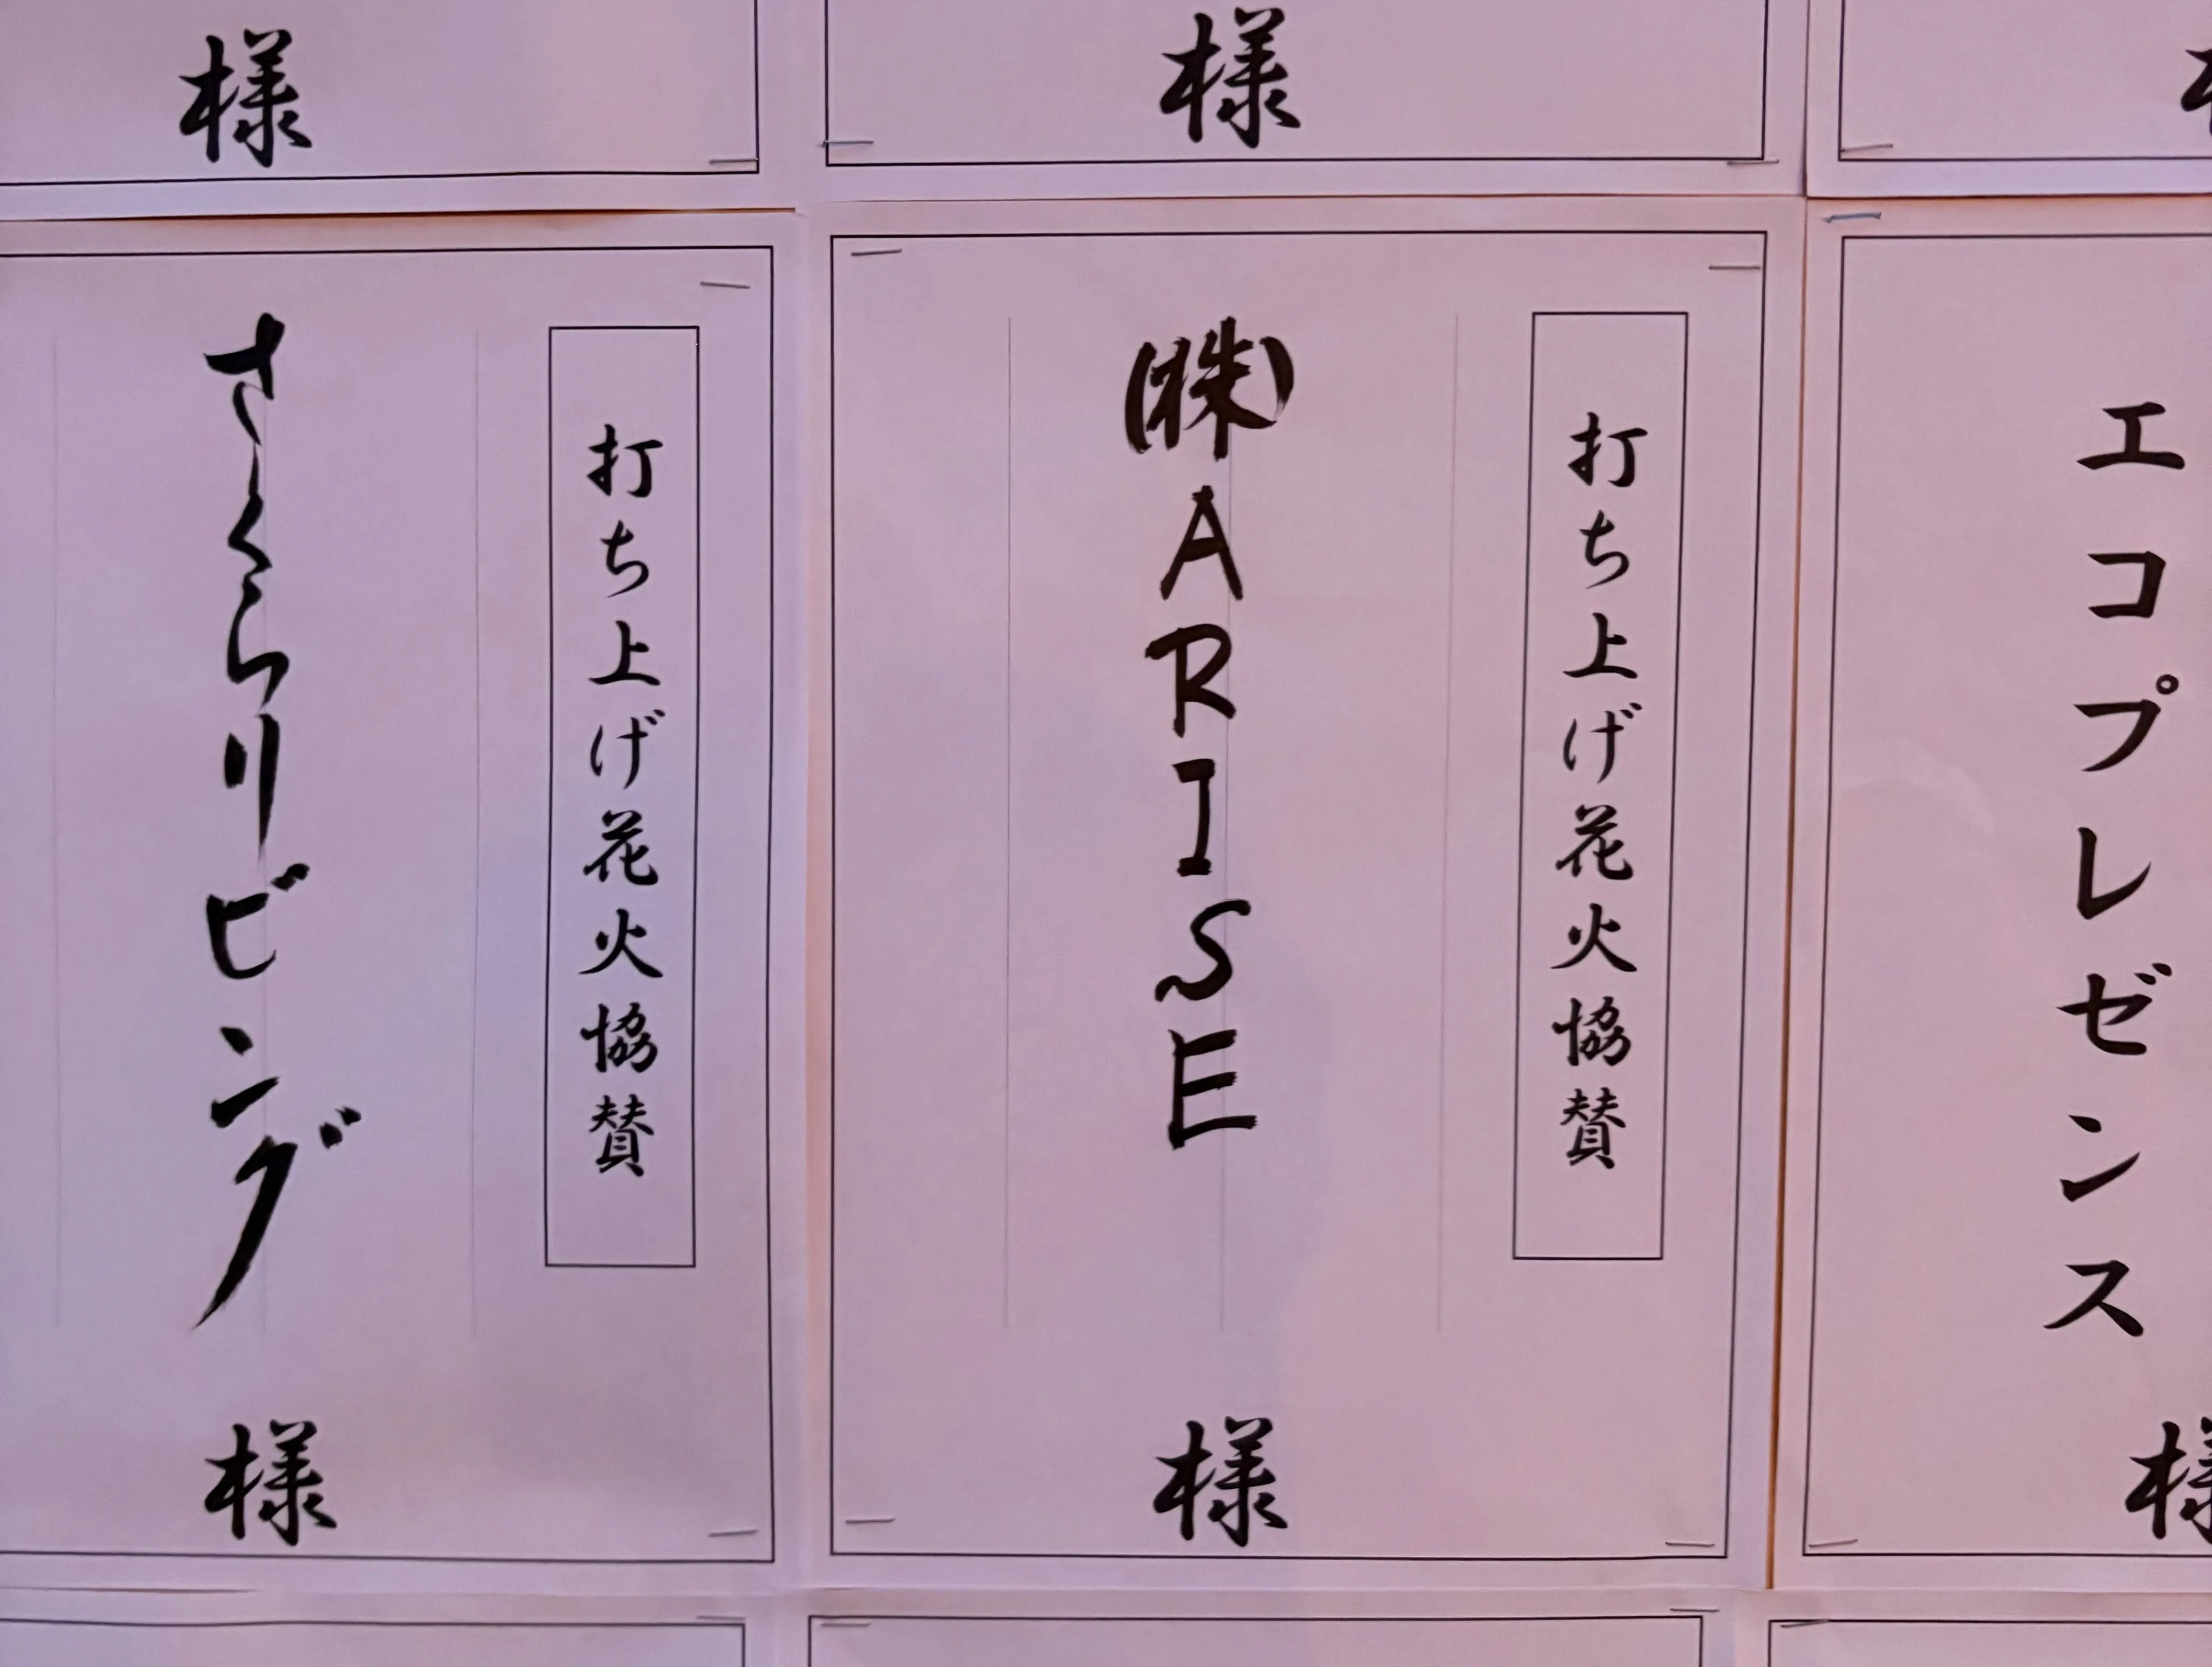 様
様
打ち上げ花火協賛
㈱ARISE
様
打ち上げ花火協賛
さくらリビング
様
エコプレゼンス
様